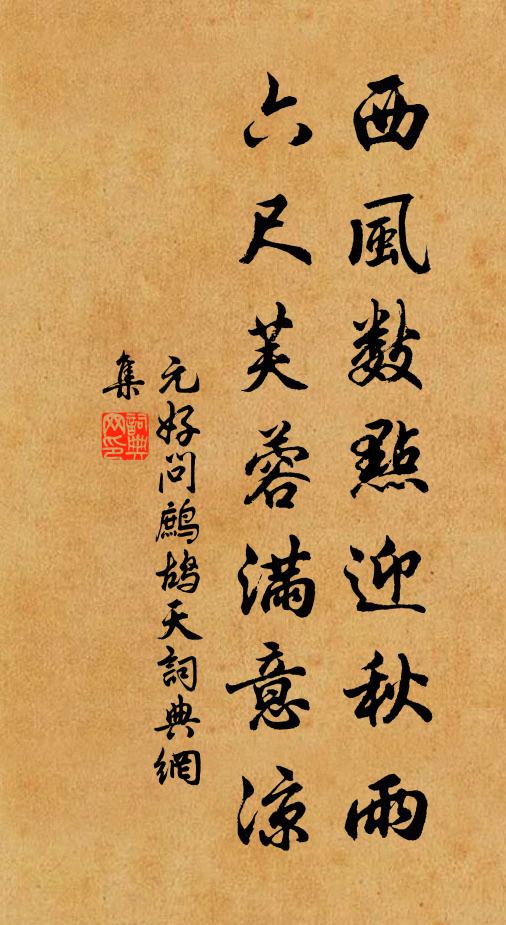 西風數點迎秋雨
六尺芙蓉滿意涼
元好問鷓鴣天詞典網
集
詞典網印